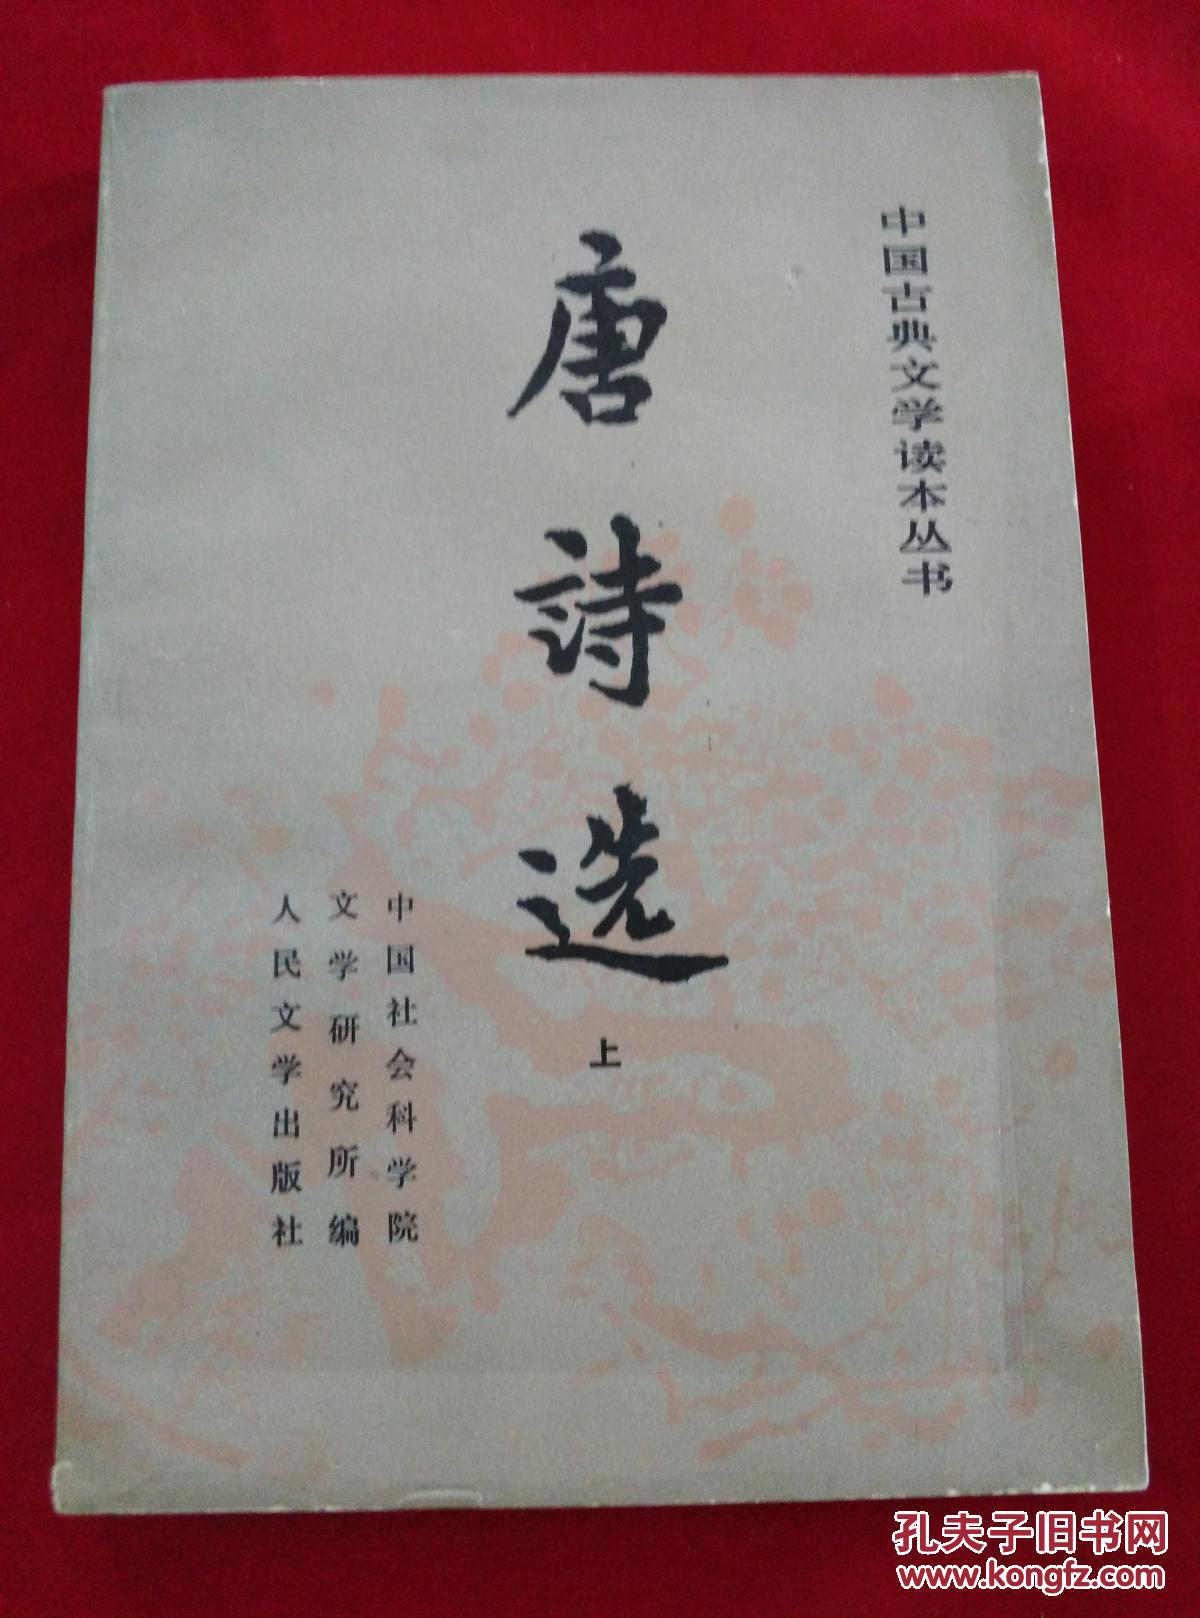 中国古典文学读本丛书
唐詩选
上
中国社会科学院
文学研究所编
人民文学出版社
孔夫子旧书网
www.kongfz.com